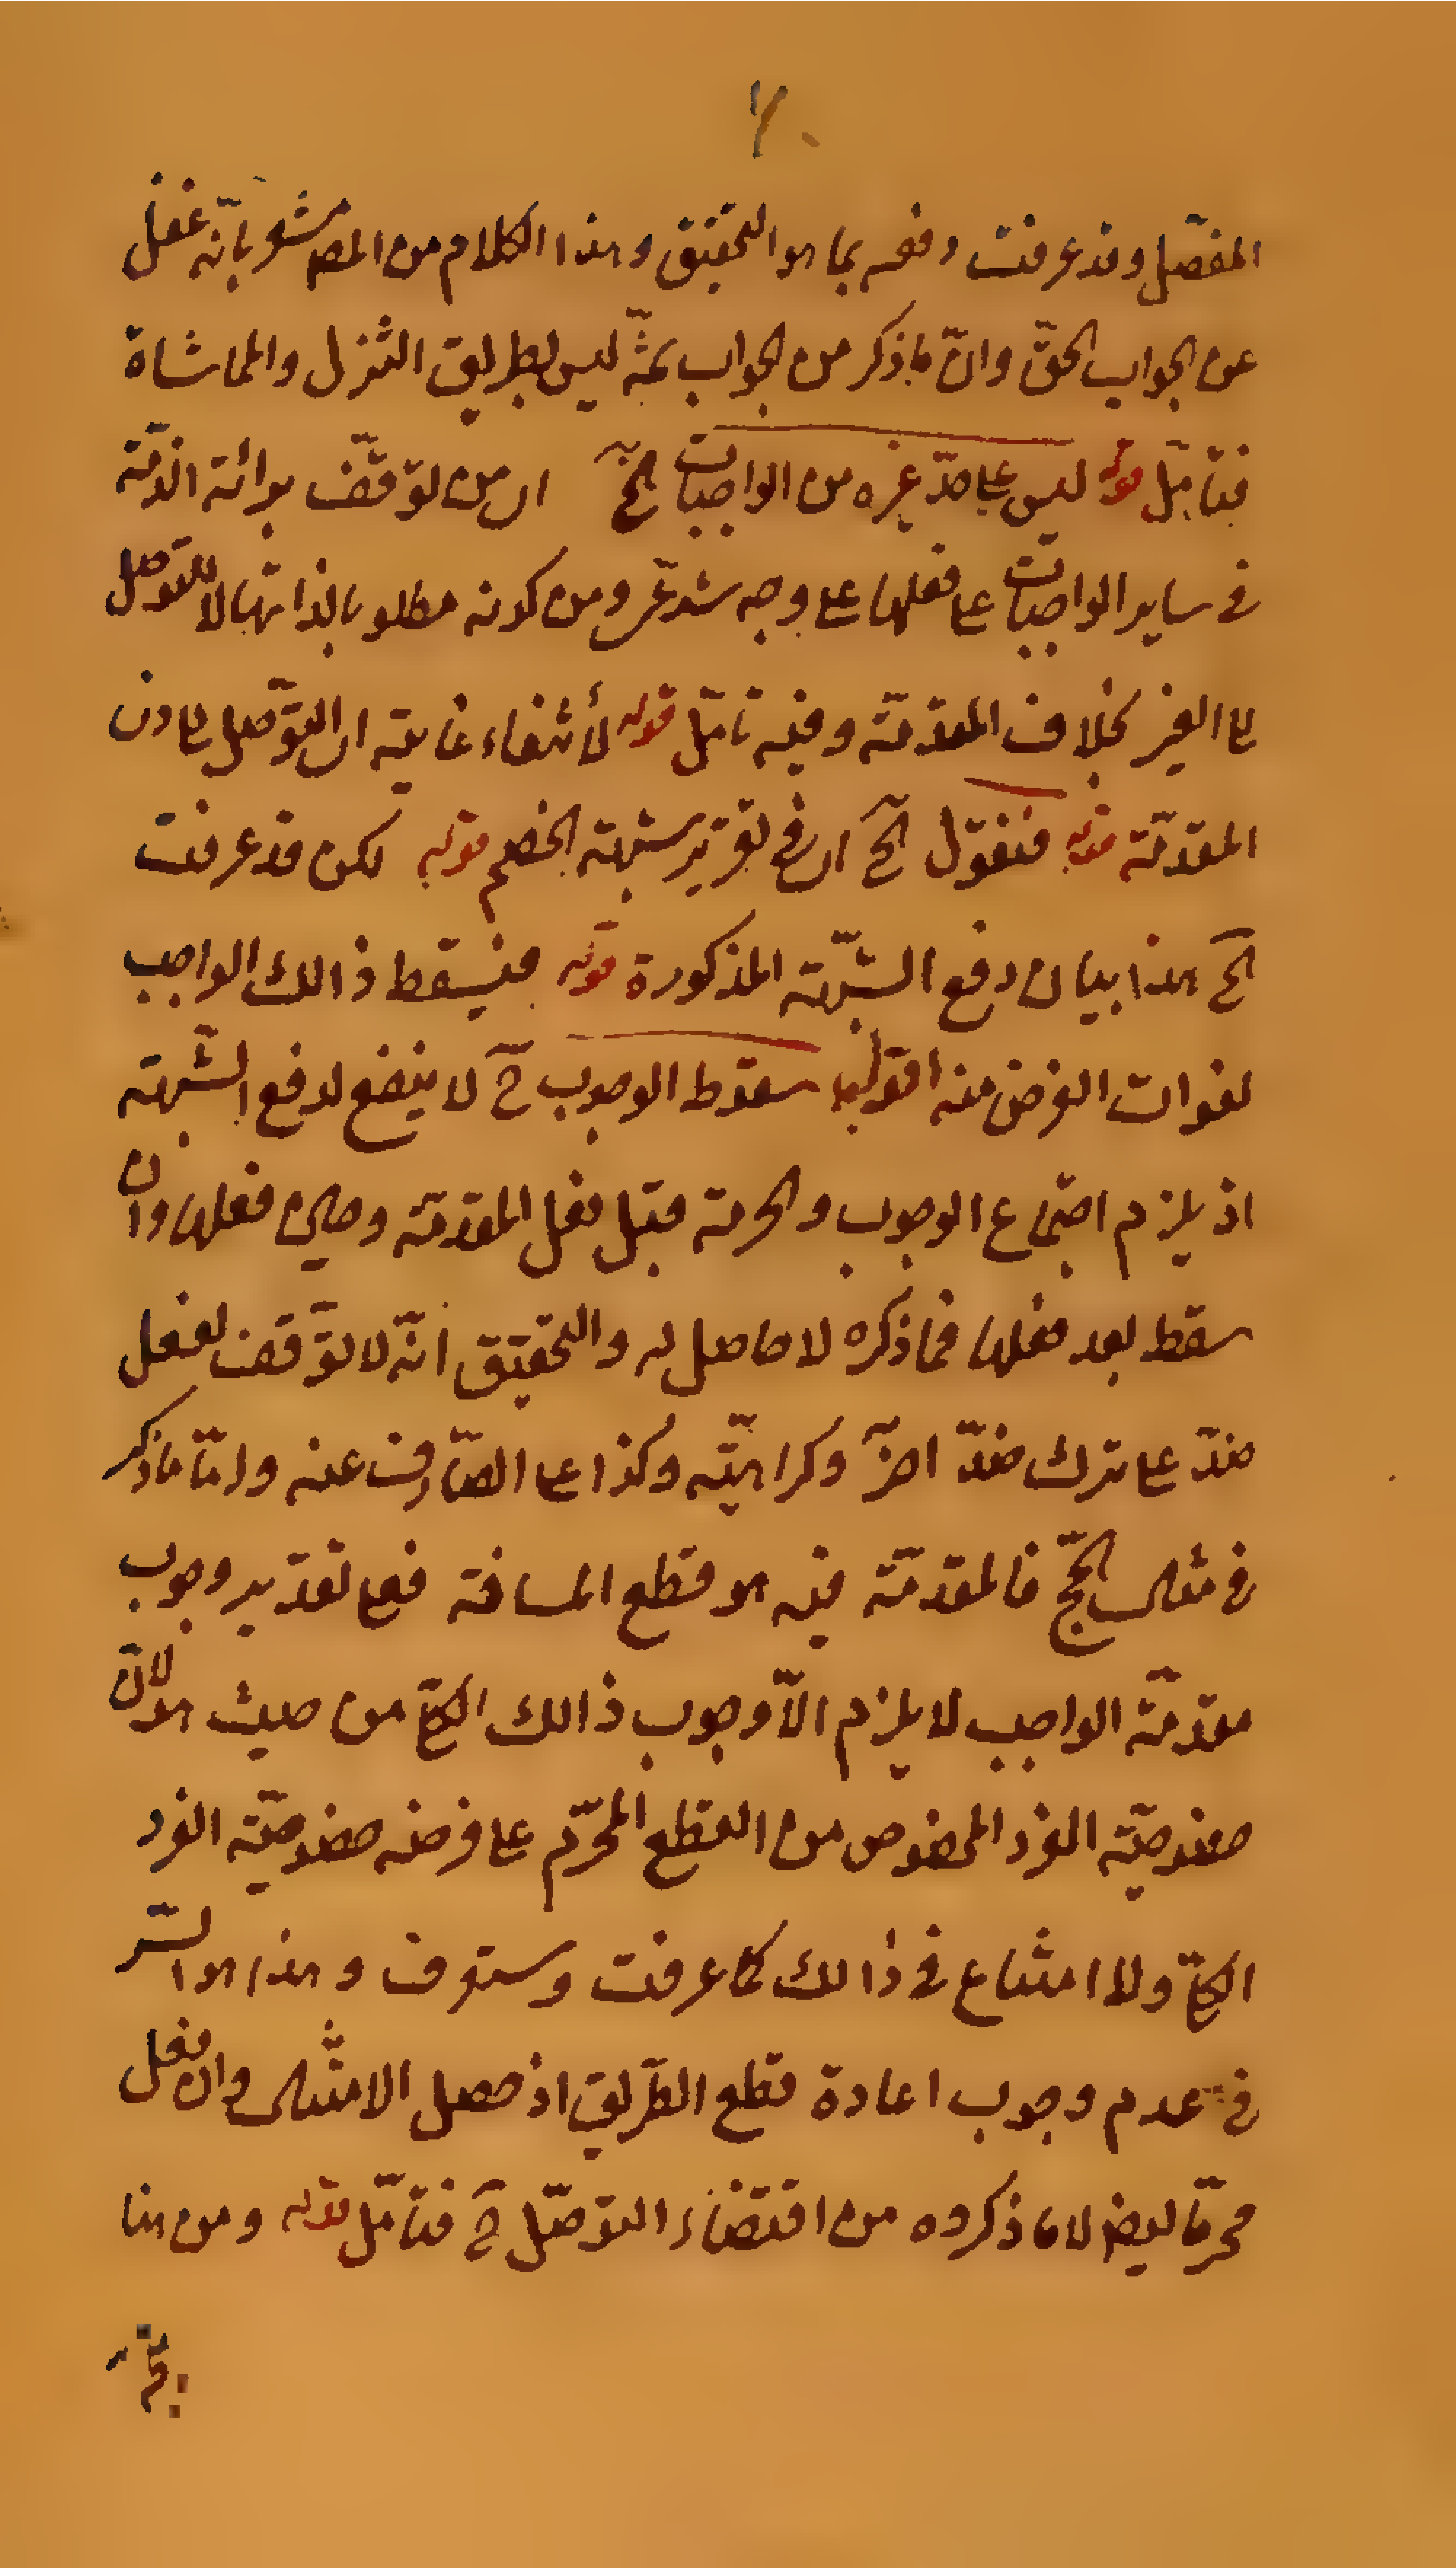 ٧٠
المفصّل وقد عرفت دفعه بما هو التحقيق وهذا الكلام من المص مشعر بانّه غفل
عن الجواب الحقّ وانّ ما ذكر من الجواب ثمّة ليس بطريق التنزل والمماشاة
فتأمّل قوله ليس على حدّ غيره من الواجبات الخ اى من توقّف برائة الذمّة
فى ساير الواجبات على فعلها على وجه شرعى ومن كونه مطلوبا لذاتها لا للتوصل
على الغير بخلاف المقدّمة وفيه تامّل قوله لأنتفاء غايته اى التوّصل على ذى
المقدّمة قوله فنقول الخ اى فى تقرير شبهة الخصم قوله لكن قد عرفت
الخ هذا بيان دفع الشبهة المذكورة قوله فيسقط ذالك الواجب
لفوات الغرض منه اقول سقوط الوجوب ح لا ينفع لدفع الشّبهة
اذ يلزم اجتماع الوجوب والحرمة قبل فعل المقدّمة وحين فعلها وان
سقط بعد فعلها فما ذكره لا حاصل له والتحقيق انّه لا توّقف لفعل
ضدّ على ترك ضدّ اخر وكراهيّته وكذا على الصّارف عنه وامّا ما ذكر
فى مثال الحجّ فالمقدّمة فيه هو قطع المسافة فعلى تقدير وجوب
مقدّمة الواجب لا يلزم الاّ وجوب ذالك الكلّى من حيث هو لانّ
خصوصيّة الفرد المخصوص من القطع المحرّم على فرضه خصوصيّة الفرد
الكلّى ولا امتناع فى ذالك كما عرفت وستعرف وهذا هو السّر
فى عدم وجوب اعادة قطع الطّريق اذ حصل الامتثال وان فعل
محرّما ايضا لا ما ذكروه من اقتضاء التوّصّل ح فتامّل قوله ومن هنا